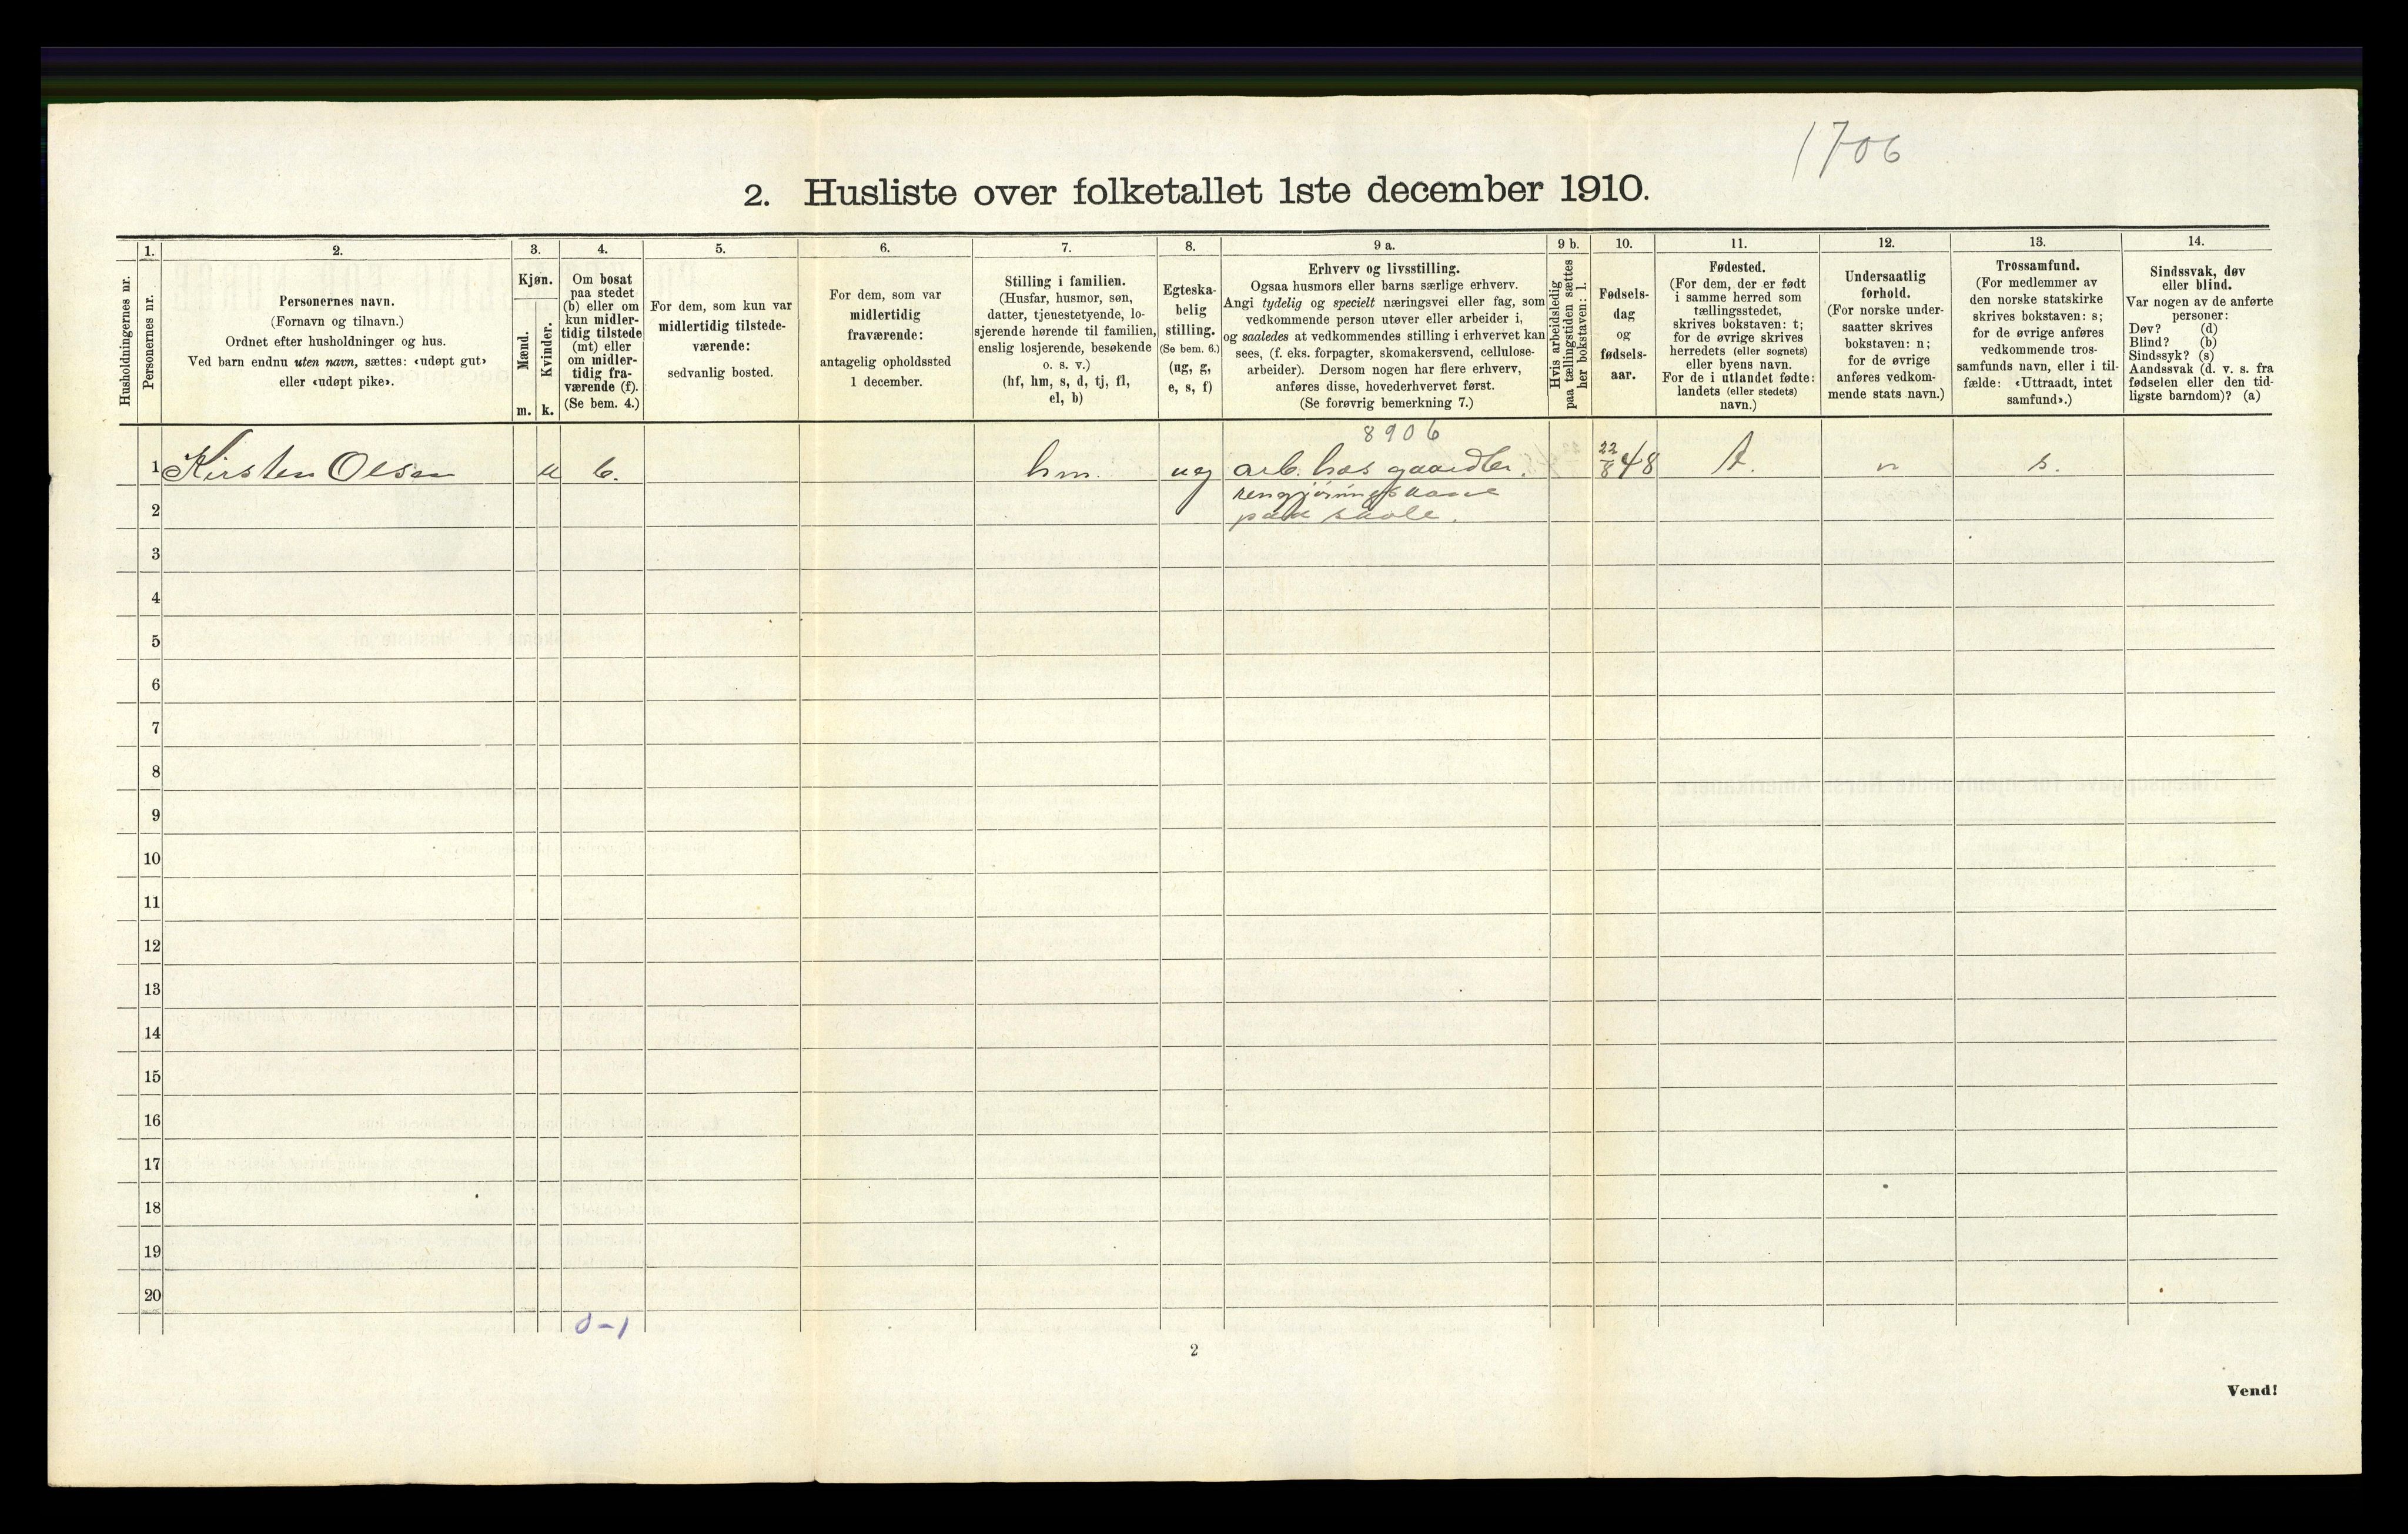 1706
2. Husliste over folketallet 1ste december 1910.
Husholdningernes nr.
1.
Personernes nr.
2.
Personernes navn.
(Fornavn og tilnavn.)
Ordnet efter husholdninger og hus.
Ved barn endnu uten navn, sættes: «udøpt gut»
eller «udøpt pike».
3.
Kjøn.
Mænd.
Kvinder.
m. k.
4.
Om bosat
paa stedet
(b) eller om
kun midler-
tidig tilstede
(mt) eller
om midler-
tidig fra-
værende (f).
(Se bem. 4.)
5.
For dem, som kun var
midlertidig tilstede-
værende:
sedvanlig bosted.
6.
For dem, som var
midlertidig
fraværende:
antagelig opholdssted
1 december.
7.
Stilling i familien.
(Husfar, husmor, søn,
datter, tjenestetyende, lo-
sjerende hørende til familien,
enslig losjerende, besøkende
o. s. v.)
(hf, hm, s, d, tj, fl,
el, b)
8.
Egteska-
belig
stilling.
(Se bem. 6.)
(ug, g,
e, s, f)
9 a.
Erhverv og livsstilling.
Ogsaa husmors eller barns særlige erhverv.
Angi tydelig og specielt næringsvei eller fag, som
vedkommende person utøver eller arbeider i,
og saaledes at vedkommendes stilling i erhvervet kan
sees, (f. eks. forpagter, skomakersvend, cellulose-
arbeider). Dersom nogen har flere erhverv,
anføres disse, hovederhvervet først.
(Se forøvrig bemerkning 7.)
9 b.
Hvis arbeidsledig
paa tællingstiden sættes
her bokstaven: l.
10.
Fødsels-
dag
og
fødsels-
aar.
11.
Fødested.
(For dem, der er født
i samme herred som
tællingsstedet,
skrives bokstaven: t;
for de øvrige skrives
herredets (eller sognets)
eller byens navn.
For de i utlandet fødte:
landets (eller stedets)
navn.)
12.
Undersaatlig
forhold.
(For norske under-
saatter skrives
bokstaven: n;
for de øvrige
anføres vedkom-
mende stats navn.)
13.
Trossamfund.
(For medlemmer av
den norske statskirke
skrives bokstaven: s;
for de øvrige anføres
vedkommende tros-
samfunds navn, eller i til-
fælde: «Uttraadt, intet
samfund».)
14.
Sindssvak, døv
eller blind.
Var nogen av de anførte
personer:
Døv? (d)
Blind? (b)
Sindssyk? (s)
Aandssvak (d. v. s. fra
fødselen eller den tid-
ligste barndom)? (a)
8906
1 Kirsten Olsen k b. hm. ug arb. hos gaardbr. 22/8 48 t. n s.
rengjøringskone
2 paa skole.
3
4
5
6
7
8
9
10
11
12
13
14
15
16
17
18
19
20
0-1
2
Vend!